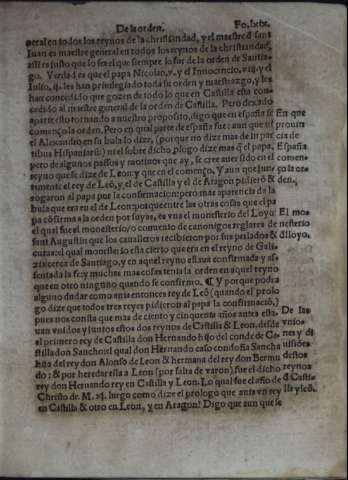 De la orden. Fo. lxix.
neral en todos los reynos de la christiandad, y el maestre d̃ sant
Iuan es maestre general en todos los reynos de la christiandad,
assi es justo que lo sea el que siempre lo fue de la orden de Santia-
go. Verdad es que el papa Nicolao, v. y el Innocencio, viij. y el
Iulio, ij. les han privilegiado toda su orden y maestrazgo, y les
han concedido que gozen de todo lo que en Castilla esta con-
cedido al maestre general de la orden de Castilla. Pero dexado
aparte esto tornando a nuestro proposito, digo que en españa se
començo la orden. Pero en qual parte de españa fue: aun que ni
el Alexandro en su bula lo dize, (porque no dize mas de in par
tibus Hispaniarũ) ni el sobre dicho, plogo dize mas q̃ el papa,
pero de algunos passos y motiuos que ay, se cree auer sido en el
reyno que se dize de Leon: y que en el començo. Y aun que jun-
tamente el rey de Leõ, y el de Castilla y el de Aragon pidierõ &
rogaron al papa por la confirmacion: pero mas aparencia da la
bula que era en el de Leon: porque entre las otras cosas que el pa
pa cõfirma a la orden por suyas, es vna el monesterio del Loyo:
el qual fue el monesterio/o conuento de canonigos reglares de
sant Augustin que los caualleros recibieron por sus perlados &
curas: el qual monesterio esta cierto que era en el reyno de Gali-
zia cerca de Santiago, y en aquel reyno estaua confirmada y af-
sentada la fe, y muchas mas cosas tenia la orden en aquel reyno
que en otro ninguno quando se confirmo. ¶ Y por que podra
alguno dudar como auia entonces rey de Leõ (quando el prolo
go dize que todos tres reyes pidieron al papa la confirmaciõ,)
pues nos consta que mas de ciento y cinquenta años antes esta-
uan vnidos y juntos estos dos reynos de Castilla & Leon, desde
el primero rey de Castilla don Hernando hijo del conde de Ca-
stilla don Sancho: el qual don Hernando caso con doña Sancha
hija del rey don Alonso de Leon & hermana del rey don Bermu
do: & por heredar ella a Leon (por falta de varon) fue el dicho
rey don Hernando rey en Castilla y Leon. Lo qual fue el año de
Christo de M. xj. luego como dize el prologo que auia vn rey
en Castilla & otro en Leon, y en Aragon? Digo que aun que se
En que
parte de
España
comen-
ço la or-
den.
El mo-
nesterio
d̃ loyo.
De las
vnio-
nes y di
uisiões
destos
reynos
d̃ Casti-
lla y leõ.